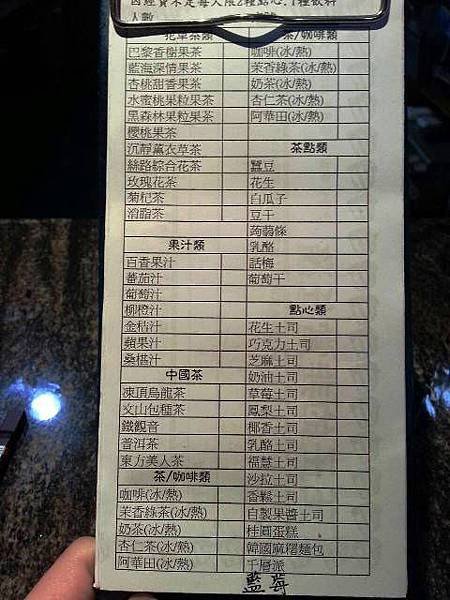 因經費不足每人限2種點心.1種飲料
人數
花草茶類
巴黎香榭果茶
藍海深情果茶
杏桃甜香果茶
水蜜桃果粒果茶
黑森林果粒果茶
櫻桃果茶
沉靜薰衣草茶
絲路綜合花茶
玫瑰花茶
菊杞茶
消脂茶
果汁類
百香果汁
蕃茄汁
葡萄汁
柳橙汁
金桔汁
蘋果汁
桑椹汁
中國茶
凍頂烏龍茶
文山包種茶
鐵觀音
普洱茶
東方美人茶
茶/咖啡類
咖啡(冰/熱)
茉香綠茶(冰/熱)
奶茶(冰/熱)
杏仁茶(冰/熱)
阿華田(冰/熱)
茶/咖啡類
咖啡(冰/熱)
茉香綠茶(冰/熱)
奶茶(冰/熱)
杏仁茶(冰/熱)
阿華田(冰/熱)
茶點類
蠶豆
花生
白瓜子
豆干
蒟蒻條
乳酪
話梅
葡萄干
點心類
花生土司
巧克力土司
芝麻土司
奶油土司
草莓土司
鳳梨土司
椰香土司
乳酪土司
福慧土司
沙拉土司
香鬆土司
自製果醬土司
桂圓蛋糕
韓國麻糬麵包
千層派
藍莓